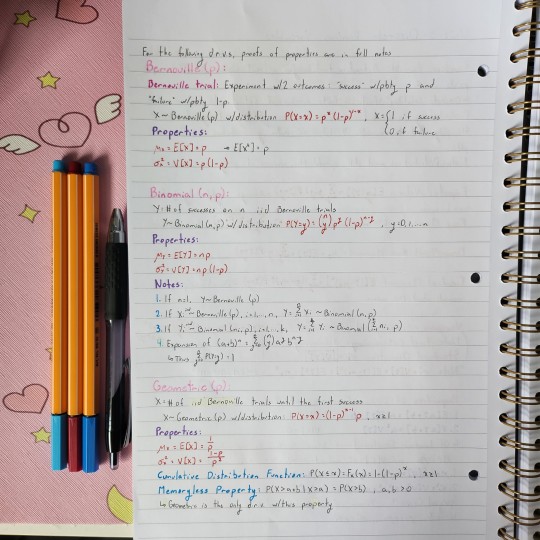 For the following d.r.v.s, proofs of properties are in full notes
Bernouille (p):
Bernouille trial: Experiment w/2 outcomes: "success" w/pbty p and
"failure" w/pbty 1-p.
X ~ Bernouille (p) w/distribution P(X=x) = pˣ (1-p)¹⁻ˣ , x = { 1 if success
0 if failure
Properties:
μₓ = E[X] = p → E[Xᵏ] = p
σₓ² = V[X] = p(1-p)
Binomial (n,p):
Y = # of successes on n iid Bernouille trials
Y ~ Binomial (n,p) w/ distribution P(Y=y) = (n y) pʸ (1-p)ⁿ⁻ʸ , y=0,1,...,n
Properties:
μᵧ = E[Y] = np
σᵧ² = V[Y] = np(1-p)
Notes:
1. If n=1, Y ~ Bernouille (p)
2. If Xᵢ iid~ Bernouille (p), i=1,...,n, Y = Σ Xᵢ ~ Binomial (n,p)
3. If Yᵢ ~ Binomial (nᵢ,p), i=1,...,k, Y = Σ Yᵢ ~ Binomial (Σ nᵢ, p)
4. Expansion of (a+b)ⁿ = Σ (n y) aʸ bⁿ⁻ʸ
↳ Thus Σ P(Y=y) = 1
Geometric (p):
X = # of iid Bernouille trials until the first success
X ~ Geometric (p) w/distribution: P(X=x) = (1-p)ˣ⁻¹ p , x≥1
Properties:
μₓ = E[X] = 1/p
σₓ² = V[X] = (1-p)/p²
Cumulative Distribution Function: P(X≤x) = Fₓ(x) = 1-(1-p)ˣ , x≥1
Memoryless Property: P(X>a+b | X>a) = P(X>b) , a,b >0
↳ Geometric is the only d.r.v. w/this property